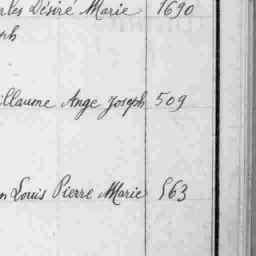 rles Désiré Marie 1690
ph
illaume Ange Joseph 509
n Louis Pierre Marie 563